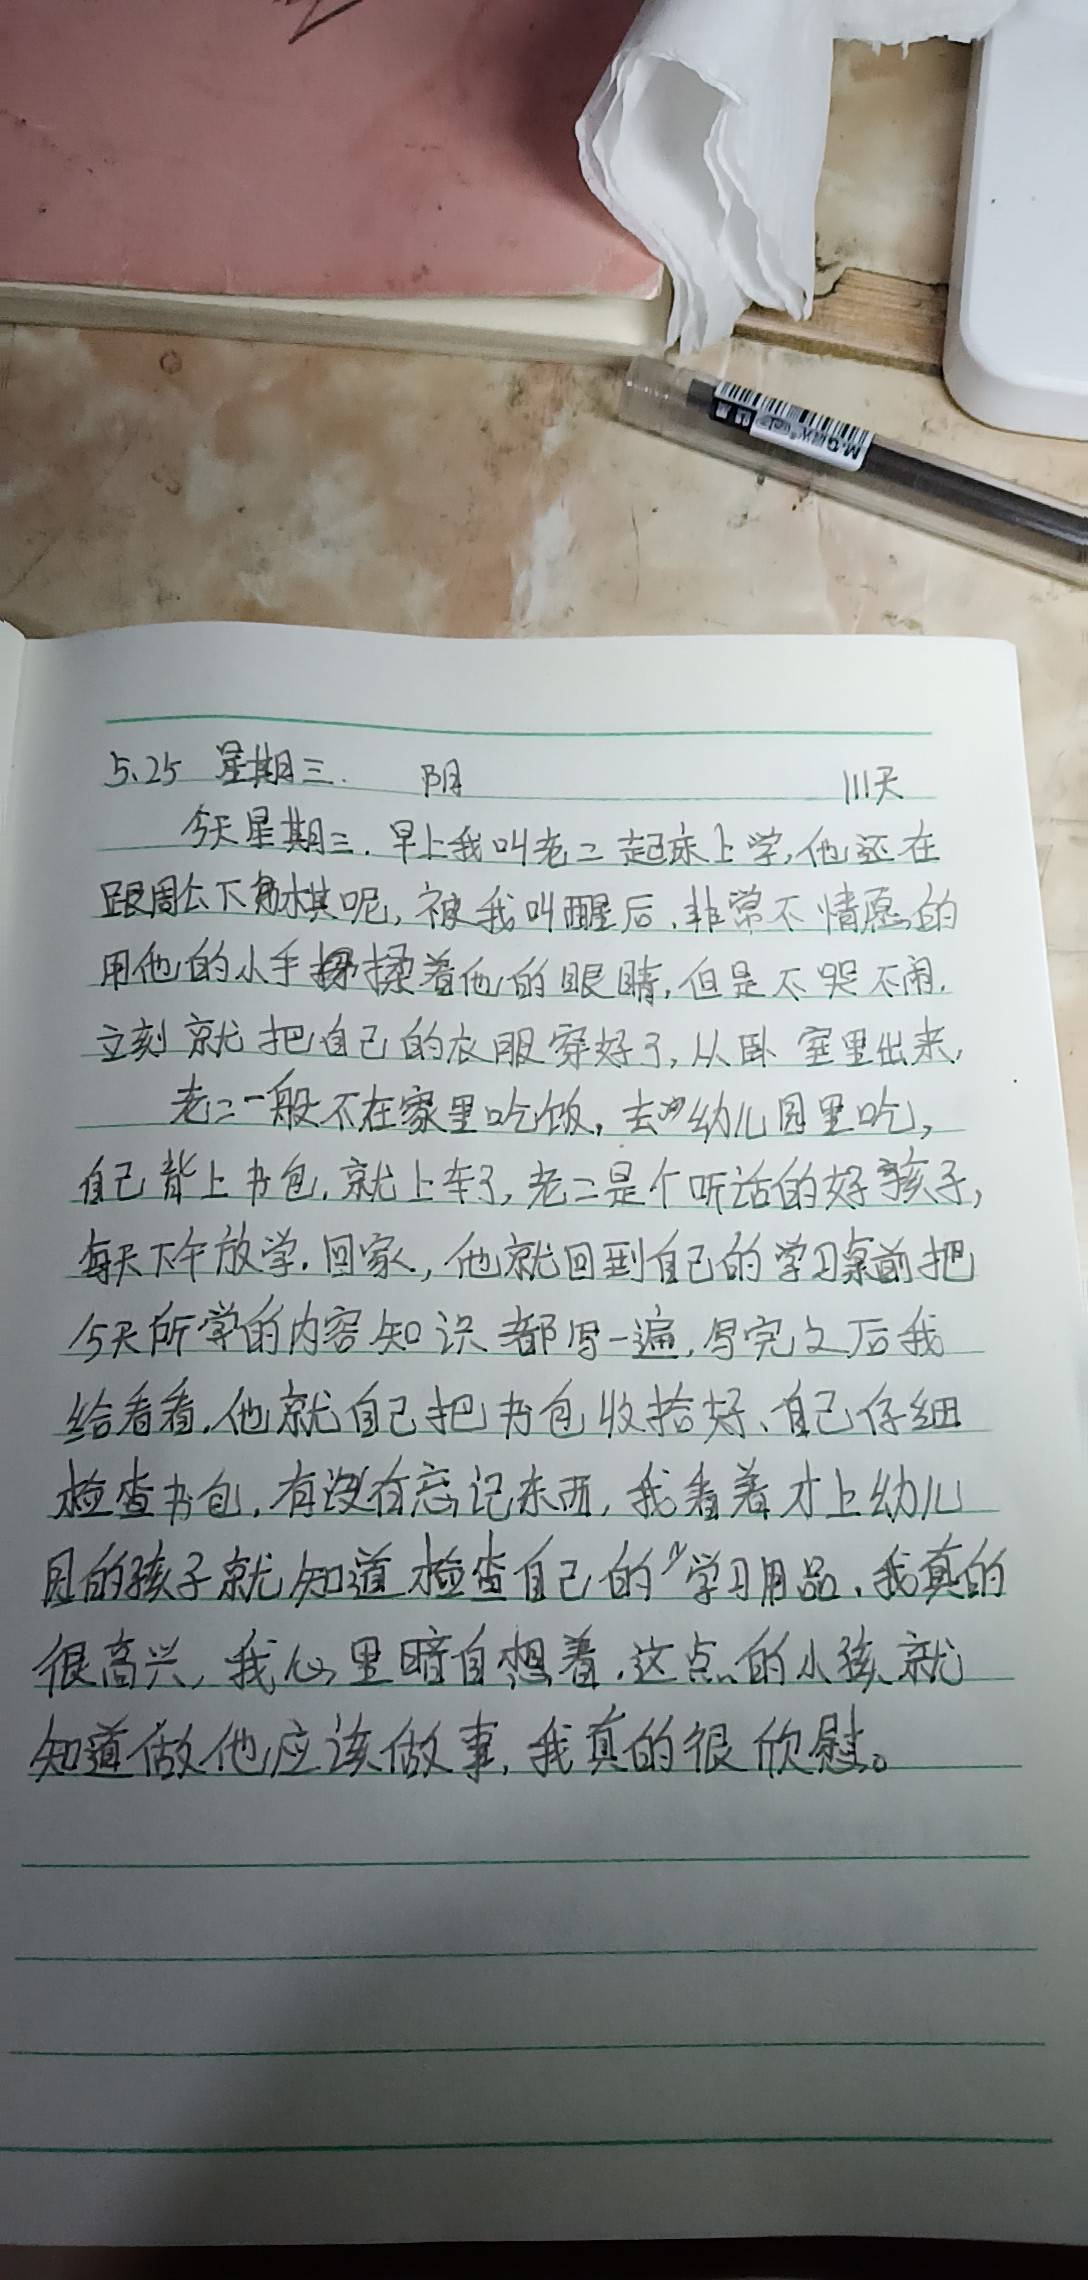 M&G
5.25 星期三. 阴 111天
今天星期三.早上我叫老二起床上学,他还在
跟周公下象棋呢,被我叫醒后.非常不情愿的
用他的小手揉着他的眼睛,但是不哭不闹.
立刻就把自己的衣服穿好了,从卧室里出来,
老二一般不在家里吃饭,去幼儿园里吃,
自己背上书包.就上车了,老二是个听话的好孩子,
每天下午放学.回家,他就回到自己的学习桌前把
今天所学的内容知识都写一遍,写完之后我
给看看.他就自己把书包收拾好、自己仔细
检查书包,有没有忘记东西,我看着才上幼儿
园的孩子就知道检查自己的"学习用品、我真的
很高兴,我心里暗自想着.这点的小孩就
知道做他应该做事,我真的很欣慰。